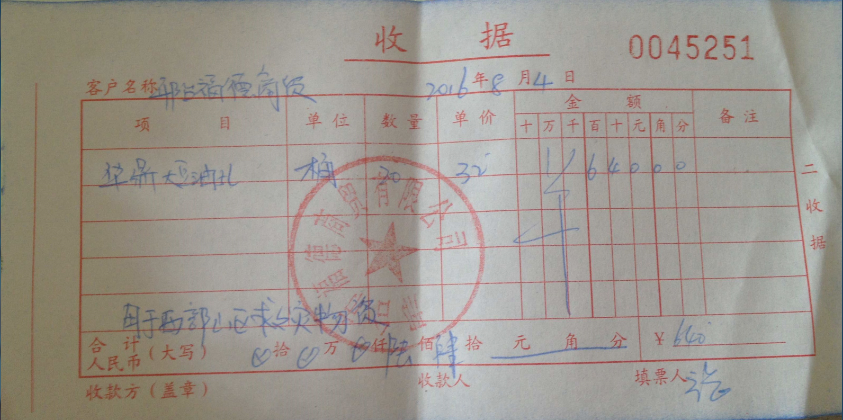 收 据
0045251
客户名称 2016年8月4日
项 目 单位 数量 单价 金 额 备注
十 万 千 百 十 元 角 分
大豆油 桶 20 32 6 4 0 0 0
二 收 据
有限公司
用于西部山区救灾物资
合 计 人民币(大写) 拾 万 仟 陆 佰 肆 拾 元 角 分 ¥ 640
收款方(盖章) 收款人 填票人